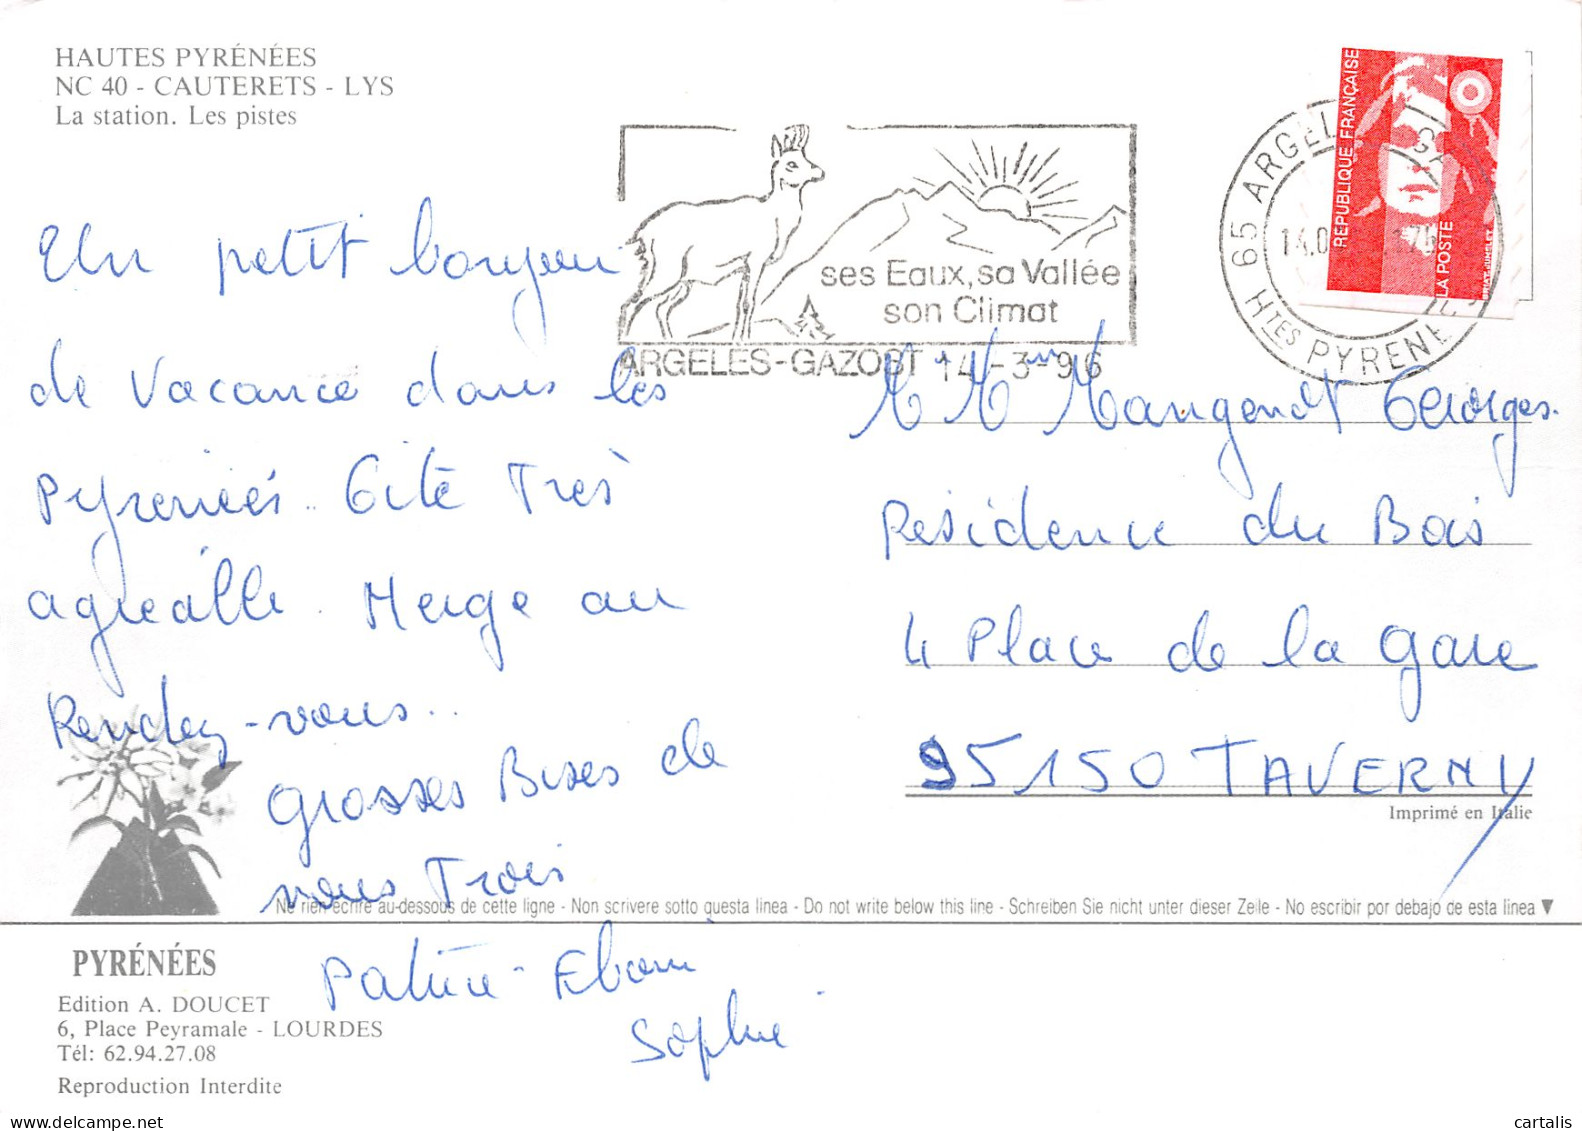 HAUTES PYRÉNÉES
NC 40 - CAUTERETS - LYS
La station. Les pistes
Un petit bonjour
de Vacance dans les
Pyrénées.. Gite Très
agréable. Neige au
Rendez-vous..
Grosses Bises de
nous Trois
Patrice - 
Sophie
ses Eaux, sa Vallée
son Climat
ARGELES-GAZOST 14-3-96
65 ARGEL GA
HTES PYRENE
REPUBLIQUE FRANÇAISE
LA POSTE
M M Mangendt Georges.
Residence du Bois
4 Place de la Gare
95150 TAVERNY
Imprimé en Italie
Ne rien écrire au-dessous de cette ligne - Non scrivere sotto questa linea - Do not write below this line - Schreiben Sie nicht unter dieser Zeile - No escribir por debajo de esta linea ▼
PYRÉNÉES
Edition A. DOUCET
6, Place Peyramale - LOURDES
Tél: 62.94.27.08
Reproduction Interdite
cartalis
www.delcampe.net